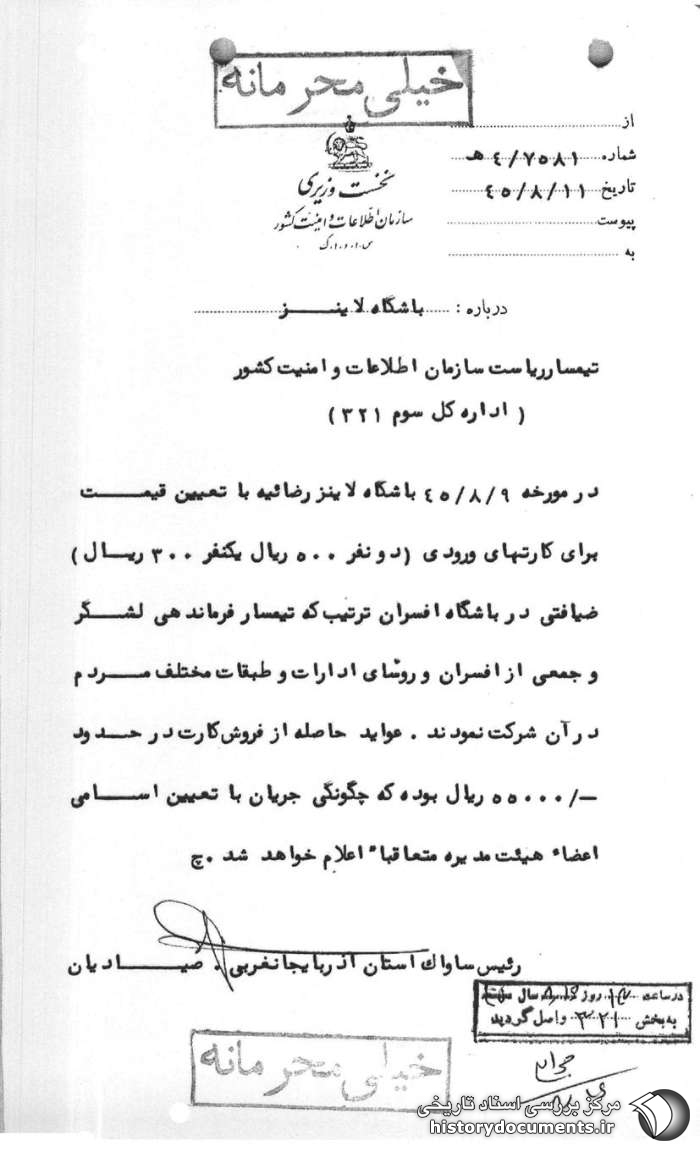 خیلی محرمانه
از
شماره ٤/٧٥٨١ هـ
تاریخ ٤٥/٨/١١
پیوست
به
نخست وزیری
سازمان اطلاعات و امنیت کشور
س.ا.و.ا.ک
درباره : باشگاه لاینز
تیمسار ریاست سازمان اطلاعات و امنیت کشور
( اداره کل سوم ٣٢١ )
در مورخه ٤٥/٨/٩ باشگاه لاینز رضائیه با تعیین قیمت
برای کارتهای ورودی (دو نفر ٥٠٠ ریال یکنفر ٣٠٠ ریال )
ضیافتی در باشگاه افسران ترتیب که تیمسار فرماندهی لشگر
و جمعی از افسران و روسای ادارات و طبقات مختلف مردم
در آن شرکت نمودند . عواید حاصله از فروش کارت در حدود
٥٥٠٠٠/– ریال بوده که چگونگی جریان با تعیین اسامی
اعضاء هیئت مدیره متعاقباً اعلام خواهد شد .چ
رئیس ساواک استان آذربایجانغربی . صیادیان
در ساعت روز سال
به بخش ٣٢١ واصل گردید
خیلی محرمانه
مرکز بررسی اسناد تاریخی
historydocuments.ir